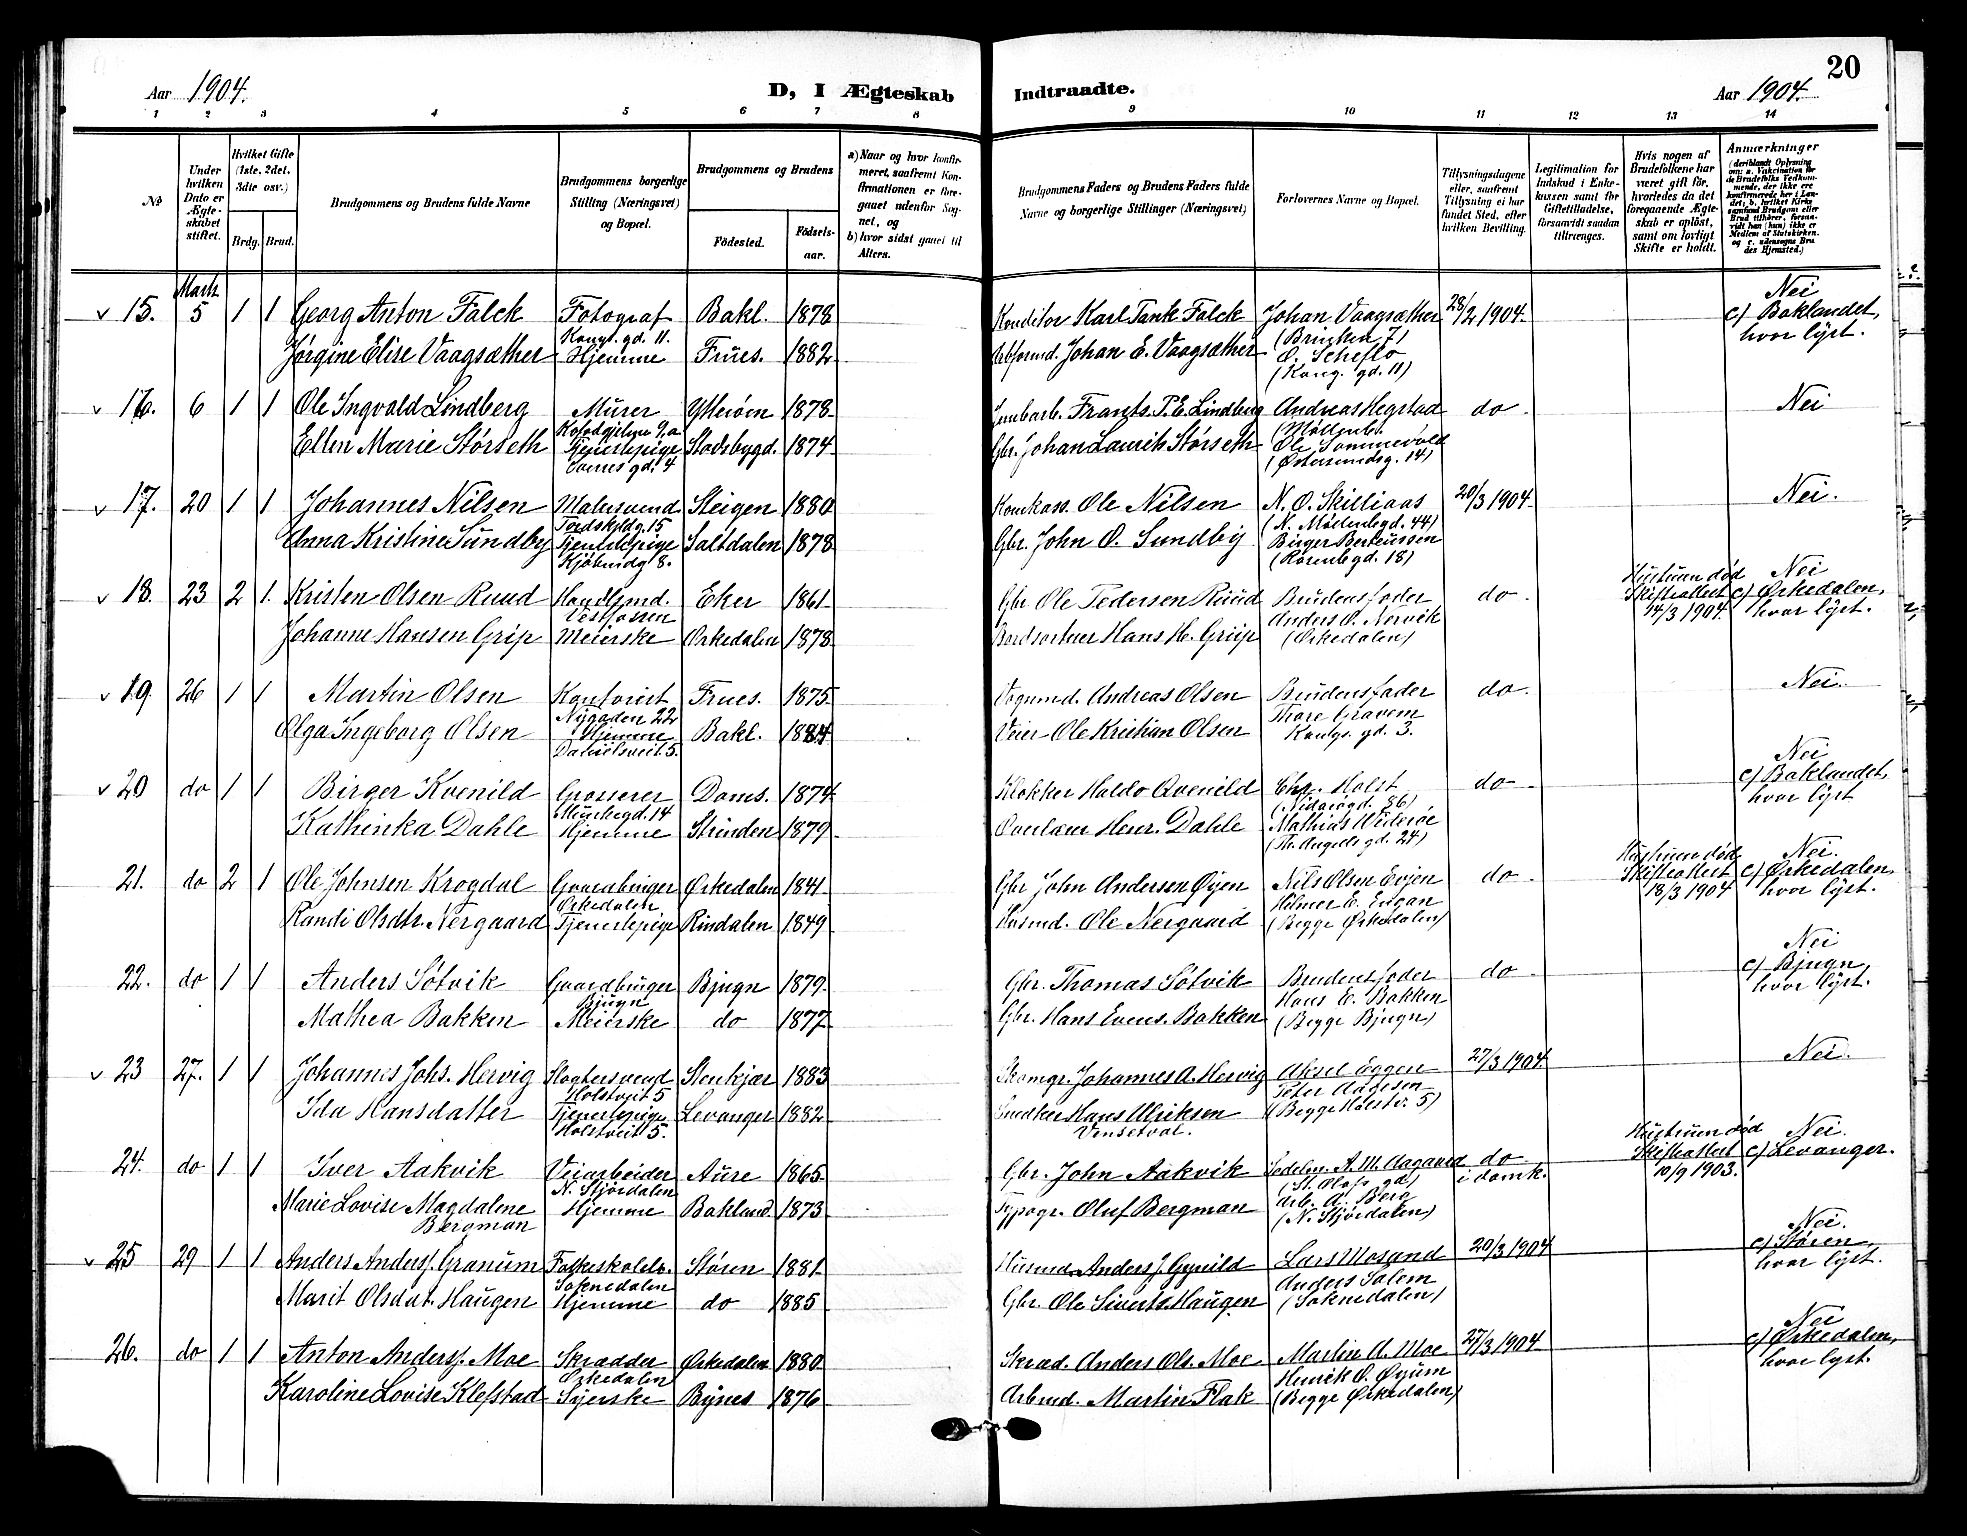 20
Aar 1904. D, I Ægteskab Indtraadte. Aar 1904.
1 2 3 4 5 6 7 8 9 10 11 12 13 14
№
Under hvilken Dato er Ægteskabet stiftet.
Hvilket Gifte (1ste, 2det, 3die osv.)
Brdg. Brud.
Brudgommens og Brudens fulde Navne
Brudgommens borgerlige Stilling (Næringsvei) og Bopæl.
Brudgommens og Brudens
Fødested. Fødselsaar.
a) Naar og hvor konfirmeret, saafremt Konfirmationen er foregaaet udenfor Sognet, og
b) hvor sidst gaaet til Alters.
Brudgommens Faders og Brudens Faders fulde Navne og borgerlige Stillinger (Næringsvei)
Forlovernes Navne og Bopæl.
Tillysningsdagene eller, saafremt Tillysning ei har fundet Sted, efter hvilken Bevilling.
Legitimation for Indskud i Enkekassen samt for Giftetilladelse, forsaavidt saadan tiltrænges.
Hvis nogen af Brudefolkene har været gift før, hvorledes da det foregaaende Ægteskab er opløst, samt om lovligt Skifte er holdt.
Anmærkninger (deriblandt Oplysning om: a. Vakcination for de Brudefolks Vedkommende, der ikke ere konfirmerede her i Landet; b. hvilket Kirkesamfund Brudgom eller Brud tilhører, forsaavidt han (hun) ikke er Medlem af Statskirken, og c. udensogns Brudes Hjemsted.)
Marts
v 15. 5 1 1 Georg Anton Falck Fotograf Kongs. gd. 11. Bakl. 1878 Konditor Karl Tank Falck Johan Vaagsæther (Brinken 7) 28/2 1904. Nei c) Baklandet, hvor lyst.
Jørgine Elise Vaagsæther Hjemme Frues. 1882 Arbformd. Johan E. Vaagsæther O. Scheflo (Kong. gd. 11)
v 16. 6 1 1 Ole Ingvald Lindberg Murer Ytterøen 1878. Frants. P. E. Lindberg Andreas Hegstad (Møllenb. do. Nei
Ellen Marie Størseth Tjenestepige gd. 4 Stadsbygd. 1874 Gbr. Johan Laurits Størseth Ole (Østersundsg. 14)
v 17. 20 1 1 Johannes Nilsen Malersvend 15 Steigen 1880 Ole Nilsen N. O. Skilliaas (N. Møllenbgd. 44) 20/3 1904. Nei.
Anna Kristine Sundby Tjenestepige Kjøbmdg 8. Saltdalen 1878 Gbr. John O. Sundby Birger Berteussen (Rosenb gd. 18)
v 18. 23 2 1. Kristen Olsen Ruud Handlsmd. Eker 1861 Gbr Ole Pedersen Ruud Brudens fader do Hustruen død Skifteattest 14/3 1904. Nei c) Ørkedalen, hvor lyst.
Johanne Hansen Grip Meierske Ørkedalen 1878 Hans H. Griip Anders O. Nervik (Ørkedalen)
v 19. 26 1 1 Martin Olsen Kontorist Nygaden 22 Frues. 1875 Vognmd. Andreas Olsen Brudens fader do. Nei.
Olga Ingeborg Olsen Hjemme Danielsveit 5. Bakl. 1884 Veier Ole Kristian Olsen Thore Gravem Kongs. gd. 3.
v 20 do 1 1 Birger Kvenild Grosserer Munkegd. 14 Doms. 1874 Klokker Haldo Qvenild Chr. Holst (Nidarøgd. 86) do Nei c) Baklandet, hvor lyst
Kathinka Dahle Hjemme Strinden 1879 Henr. Dahle Mathias Widerøe (Th. Angells gd. 24)
21. do 2 1 Ole Johnsen Krogdal Gaardbruger Ørkedalen Ørkedalen 1841. Gbr John Andersen Øyen Nils Olsen Evjen do Hustruen død Skifteattest 18/3 1904 Nei. c) Ørkedalen, hvor lyst.
Randi Olsdtr. Nergaard Tjenestepige Rindalen 1849 Husmd. Ole Nergaard Helmer E. Engan (Begge Ørkedalen)
22. do 1 1 Anders Søtvik Gaardbruger Bjugn Bjugn 1879. Gbr. Thomas Søtvik Brudens fader do Nei c) Bjugn, hvor lyst.
Mathea Bakken Meierske do 1877 Gbr. Hans Evens. Bakken Hans E. Bakken (Begge Bjugn)
v 23 27. 1 1 Johannes Johs. Hervig Slagtersvend Holstveit 5 Stenkjær 1883 Skomgr. Johannes A. Hervig Aksel Eggen 27/3 1904. Nei.
Ida Hansdatter Tjenestepige Holstveit 5. Levanger 1882 Snedker Hans Ulriksen Vinsetval. Peter Aagesen (Begge Holstv. 5)
24. do 1 1 Iver Aakvik Veiarbeider N. Stjørdalen Aure 1865 Gbr. John Aakvik A. M. Aagaard (St. Olafs gd) do i domk. Hustruen død Skifteattest 10/9 1903. Nei. c) Levanger.
Marie Lovise Magdalene Bergman Hjemme Bakland. 1873 Typogr. Oluf Bergman Arb. A. Berg (N. Stjørdalen)
v 25 29 1 1 Anders Anders. Granum Folkeskolelr. Soknedalen Støren 1881 Husmd. Anders J. Gynild Lars Mosand 20/3 1904 Nei. c) Støren, hvor lyst.
Marit Olsdat. Haugen Hjemme do 1885 Gbr. Ole Siverts. Haugen Anders Solem (Soknedalen)
26. do 1 1 Anton Anders. Moe Skrædder Ørkedalen Ørkedalen 1880 Skræd. Anders Ols. Moe Martin A. Moe 27/3 1904 Nei c) Ørkedalen, hvor lyst.
Karoline Lovise Klefstad Syerske Bynes 1876 Arbmd. Martin Flak Henrik O. Øyum (Begge Ørkedalen)